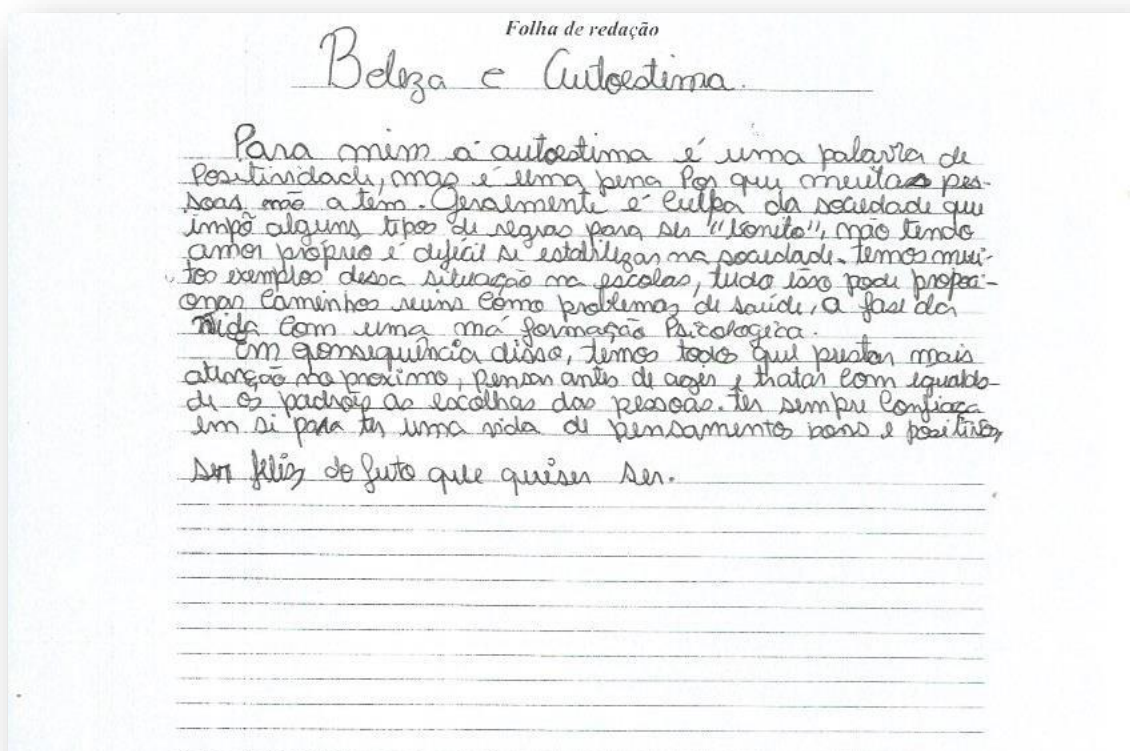 Folha de redação
Beleza e Autoestima.
Para mim a autoestima é uma palavra de
Positividade, mas é uma pena Por que muitas pes-
soas não a tem. Geralmente é culpa da sociedade que
impõ alguns tipos de regras para ser "bonito", não tendo
amor próprio é difícil si estabilizar na sociedade. temos mui-
tos exemplos dessa situação na escolas, tudo isso pode propoci-
onar Caminhos ruins como problemas de saúde, a fase da
vida Com uma má formação Psicologica.
Em consequência disso, temos todos que prestar mais
atenção no proximo, pensar antes de agir, tratar com igualda-
de os padrões as escolhas das pessoas. ter sempre Confiaça
em si para ter uma vida de pensamentos bons e positivos,
ser feliz do que quiser ser.